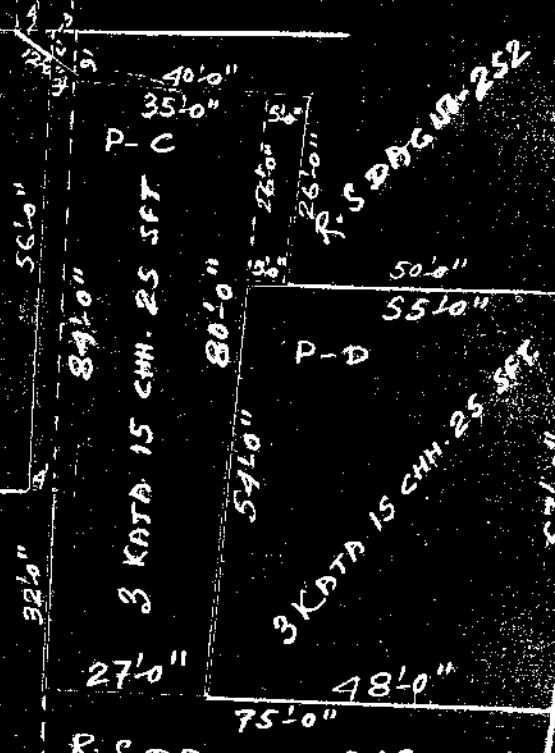 40'-0"
35'-0"
P-C
5'-0"
26'-0"
26'-0"
R.S DAG
252
56'-0"
84'-0"
3 KATA 15 CHH. 25 SFT
80'-0"
5'-0"
50'-0"
55'-0"
P-D
54'-0"
3 KATA 15 CHH. 25 SFT
4'
32'-0"
27'-0"
48'-0"
75'-0"
R.S